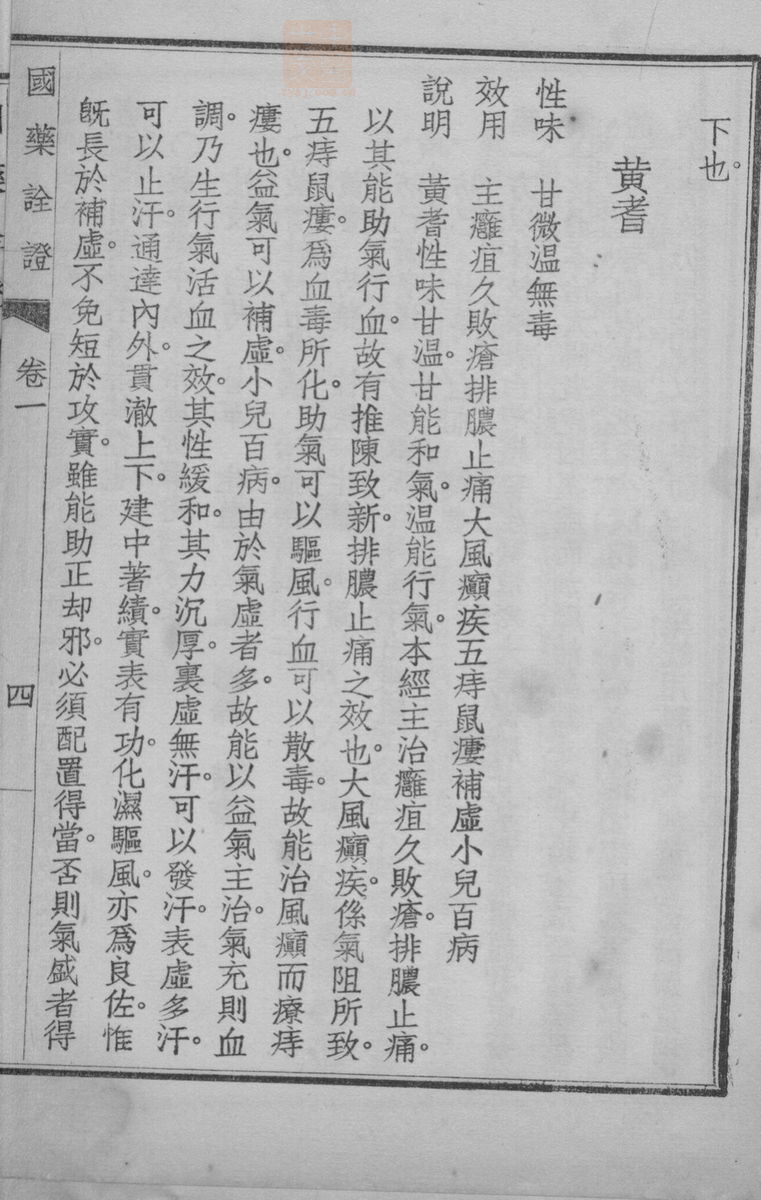 下也。
黃耆
性味　甘微温無毒
效用　主癰疽久敗瘡排膿止痛大風癩疾五痔鼠瘻補虛小兒百病
說明　黃耆性味甘温。甘能和氣。温能行氣。本經主治癰疽久敗瘡。排膿止痛。
以其能助氣行血。故有推陳致新。排膿止痛之效也。大風癩疾。係氣阻所致。
五痔鼠瘻。爲血毒所化。助氣可以驅風。行血可以散毒。故能治風癩而療痔
瘻也。益氣可以補虛。小兒百病。由於氣虛者多。故能以益氣主治。氣充則血
調。乃生行氣活血之效。其性緩和。其力沉厚。裏虛無汗。可以發汗。表虛多汗。
可以止汗。通達內外。貫澈上下。建中著績。實表有功。化濕驅風。亦爲良佐。惟
旣長於補虛。不免短於攻實。雖能助正却邪。必須配置得當。否則氣盛者得
國藥詮證　卷一　四